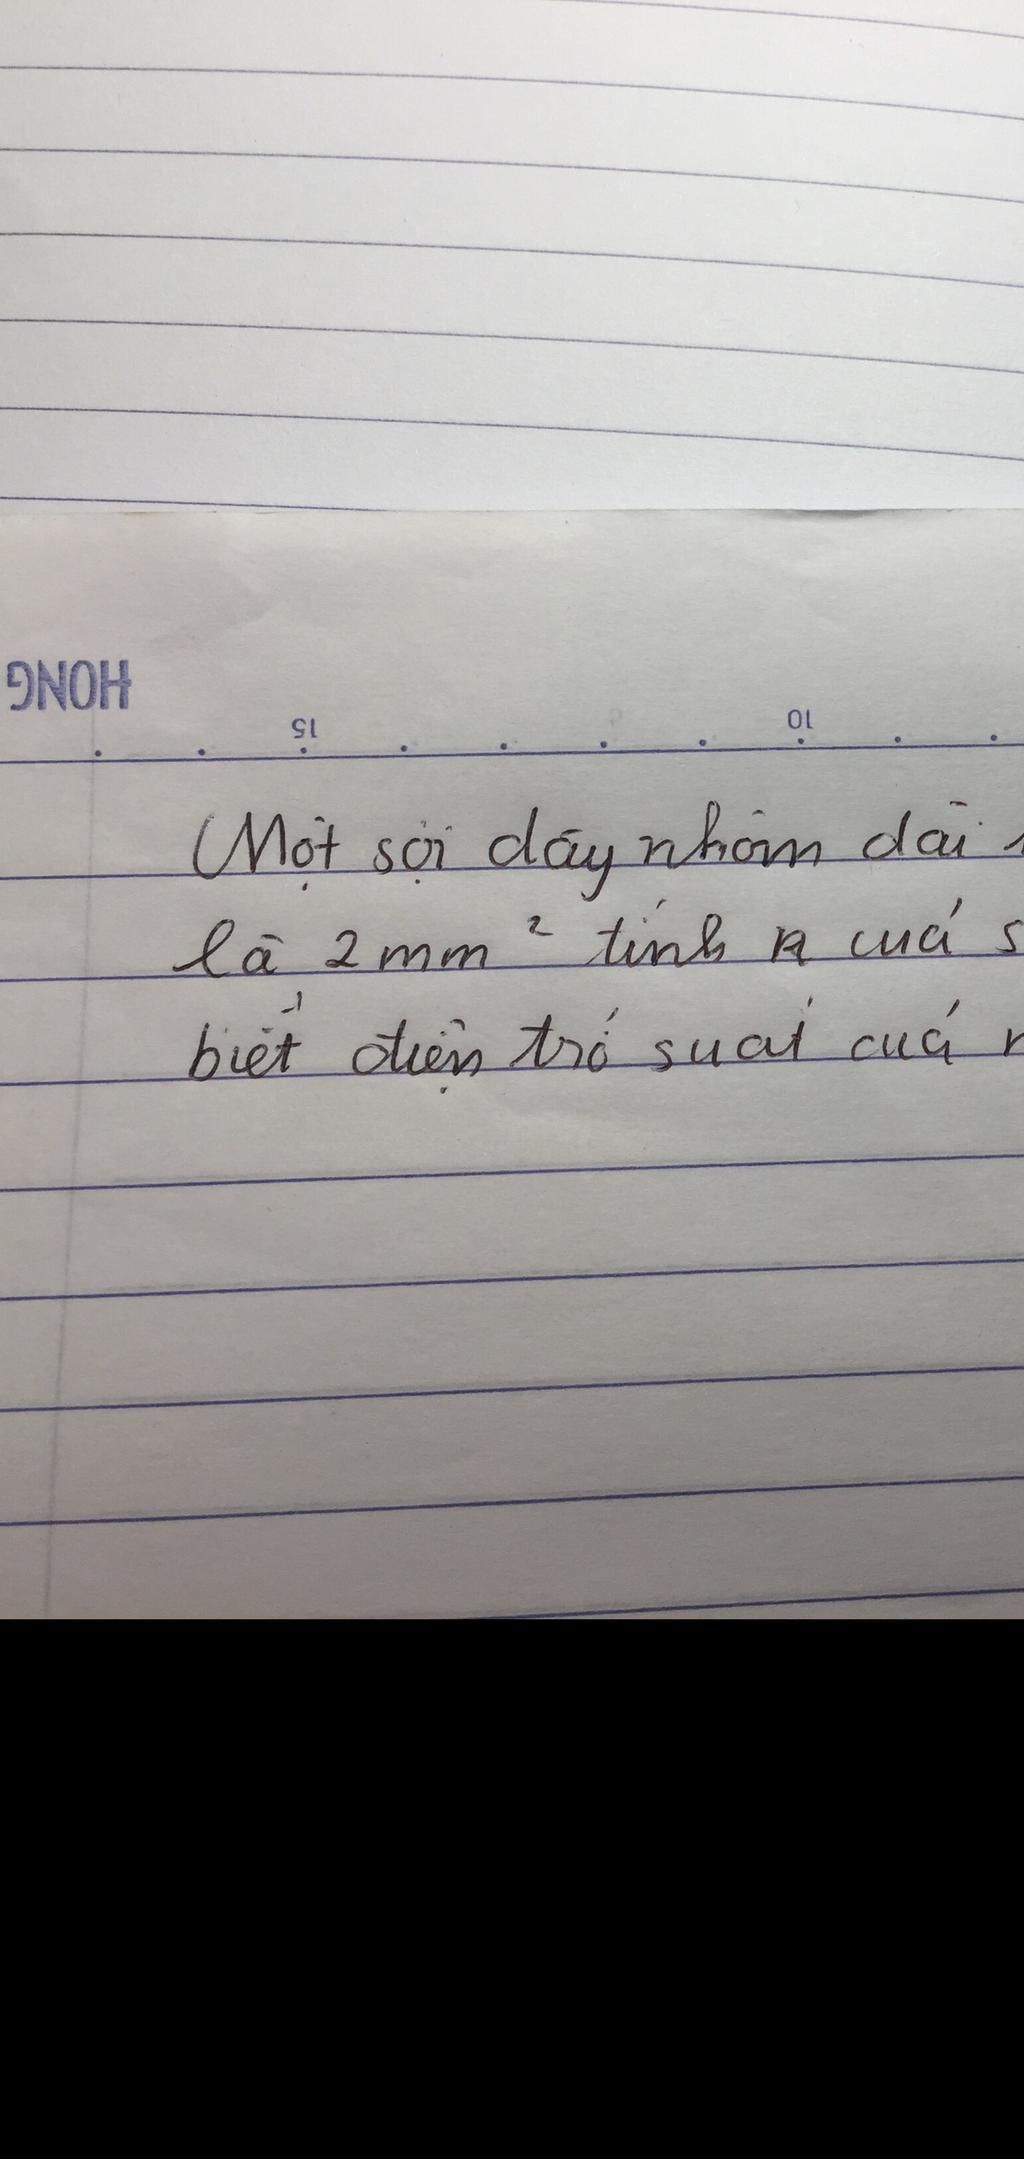 HONG
15 10
Một sợi dây nhôm dài
là 2 mm² tính R cuả
biết điện trỏ suất cuả